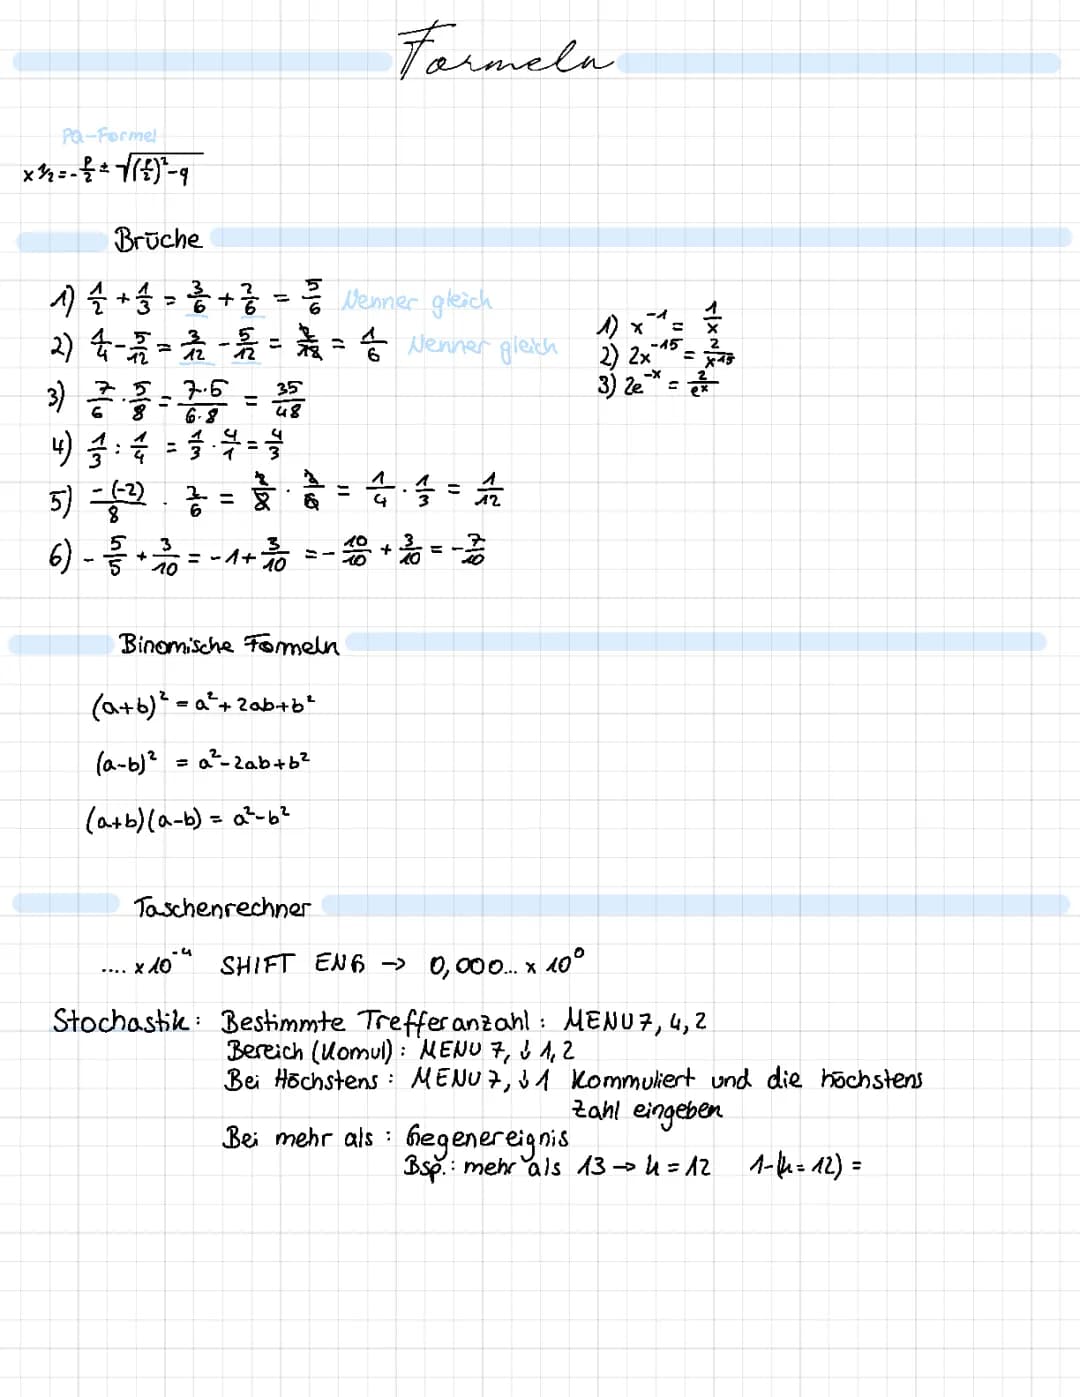 Formeln
PQ-Formel
x 1/2 = - p/2 ± √((p/2)² - q)
Brüche
1) 1/2 + 1/3 = 3/6 + 2/6 = 5/6 Nenner gleich
2) 1/4 - 5/12 = 3/12 - 5/12 = 2/12 = 1/6 Nenner gleich
3) 7/6 · 5/8 = 7·5/6·8 = 35/48
4) 1/3 : 1/4 = 1/3 · 4/1 = 4/3
5) -(-2)/8 · 2/6 = 2/8 · 2/6 = 1/4 · 1/3 = 1/12
6) - 5/5 + 3/10 = -1 + 3/10 = - 10/10 + 3/10 = - 7/10
1) x⁻¹ = 1/x
2) 2x⁻¹⁵ = 2/x¹⁵
3) 2e⁻ˣ = 2/eˣ
Binomische Formeln
(a+b)² = a² + 2ab + b²
(a-b)² = a² - 2ab + b²
(a+b)(a-b) = a² - b²
Taschenrechner
.... x 10⁻⁴ SHIFT ENG → 0,000... x 10⁰
Stochastik: Bestimmte Trefferanzahl: MENU 7, 4, 2
Bereich (Komul): MENU 7, ↓ 1, 2
Bei Höchstens: MENU 7, ↓ 1 Kommuliert und die höchstens
Zahl eingeben
Bei mehr als: Gegenereignis
Bsp.: mehr als 13 → k = 12 1-(k = 12) =